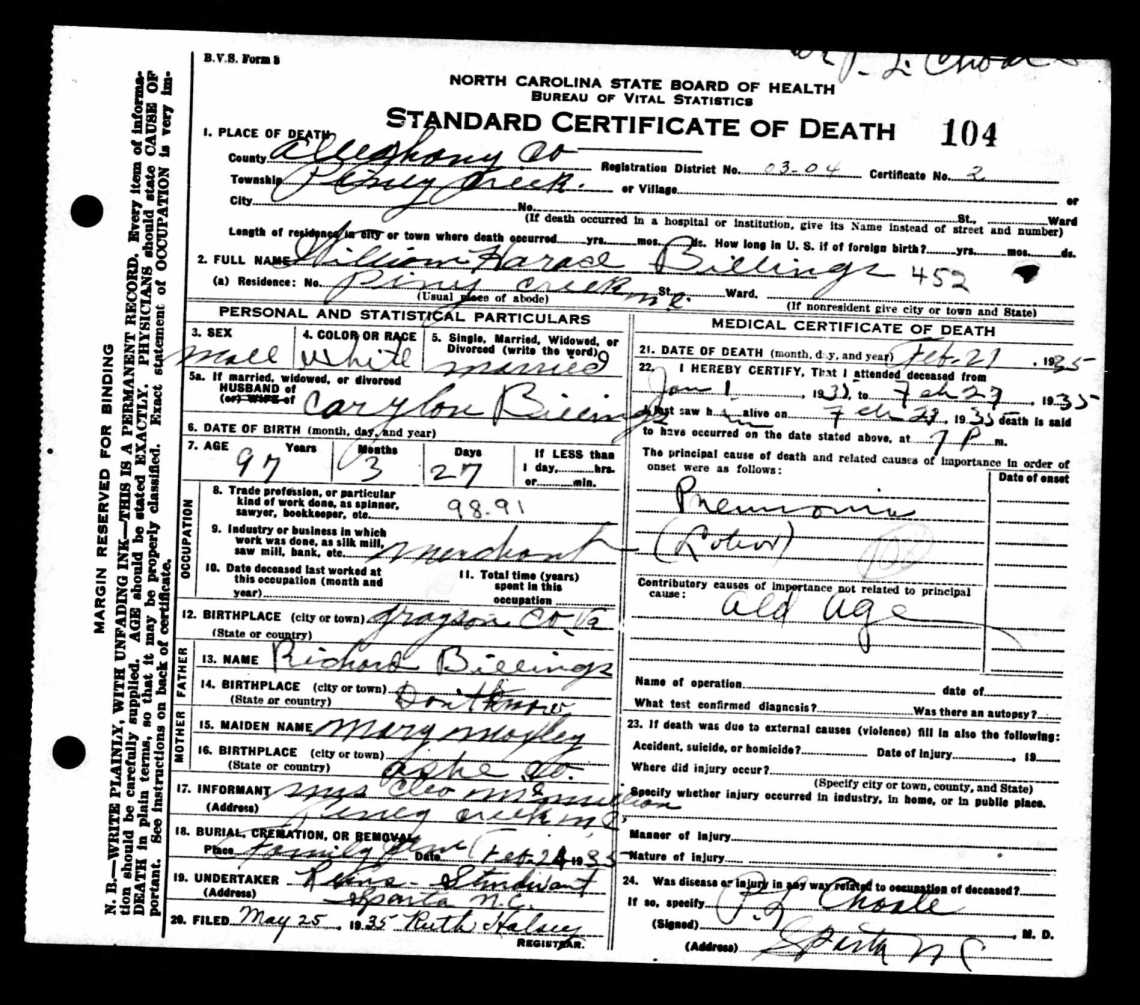 B.V.S. Form 8
P. L. Choate
NORTH CAROLINA STATE BOARD OF HEALTH
BUREAU OF VITAL STATISTICS
STANDARD CERTIFICATE OF DEATH 104
1. PLACE OF DEATH
County Alleghany Co Registration District No. 03-04 Certificate No. 2
Township Piney Creek. or Village or
City No. St., Ward
(If death occurred in a hospital or institution, give its Name instead of street and number)
Length of residence in city or town where death occurred yrs. mos. ds. How long in U. S. if of foreign birth? yrs. mos. ds.
2. FULL NAME William Horace Billings 452
(a) Residence: No. Piney Creek N.C. St. Ward.
(Usual place of abode) (If nonresident give city or town and State)
PERSONAL AND STATISTICAL PARTICULARS
3. SEX 4. COLOR OR RACE 5. Single, Married, Widowed, or
Divorced (write the word)
Male White married
5a. If married, widowed, or divorced
HUSBAND of
(or) WIFE of Billings
6. DATE OF BIRTH (month, day, and year)
7. AGE Years Months Days If LESS than
1 day, hrs.
or min.
97 3 27
OCCUPATION
8. Trade profession, or particular
kind of work done, as spinner,
sawyer, bookkeeper, etc. 98-91
9. Industry or business in which
work was done, as silk mill,
saw mill, bank, etc. Merchant
10. Date deceased last worked at
this occupation (month and
year)
11. Total time (years)
spent in this
occupation
12. BIRTHPLACE (city or town) Grayson Co Va
(State or country)
FATHER
13. NAME Richard Billings
14. BIRTHPLACE (city or town) Don't know
(State or country)
MOTHER
15. MAIDEN NAME Mary Moxley
16. BIRTHPLACE (city or town)
(State or country) Ashe Co.
17. INFORMANT Mrs Cleo McMillion
(Address) Piney Creek N.C.
18. BURIAL, CREMATION, OR REMOVAL
Place Family Date Feb. 1935
19. UNDERTAKER Sturdivant
(Address) Sparta N.C.
20. FILED May 25, 1935 Ruth Halsey
REGISTRAR.
MEDICAL CERTIFICATE OF DEATH
21. DATE OF DEATH (month, day, and year) Feb. 27 1935
22. I HEREBY CERTIFY, That I attended deceased from
Jan 1, 1935, to Feb 27, 1935
I last saw h im alive on Feb 27, 1935 death is said
to have occurred on the date stated above, at 7 P m.
The principal cause of death and related causes of importance in order of
onset were as follows:
Date of onset
Pneumonia
(Lobar)
108
Contributory causes of importance not related to principal
cause:
Old Age
Name of operation date of
What test confirmed diagnosis? Was there an autopsy?
23. If death was due to external causes (violence) fill in also the following:
Accident, suicide, or homicide? Date of injury , 19
Where did injury occur?
(Specify city or town, county, and State)
Specify whether injury occurred in industry, in home, or in public place.
Manner of injury
Nature of injury
24. Was disease or injury in any way related to occupation of deceased?
If so, specify
(Signed) P. L. Choate, M. D.
(Address) Sparta N C
MARGIN RESERVED FOR BINDING
N. B.—WRITE PLAINLY, WITH UNFADING INK—THIS IS A PERMANENT RECORD. Every item of informa-
tion should be carefully supplied. AGE should be stated EXACTLY. PHYSICIANS should state CAUSE OF
DEATH in plain terms, so that it may be properly classified. Exact statement of OCCUPATION is very im-
portant. See instructions on back of certificate.